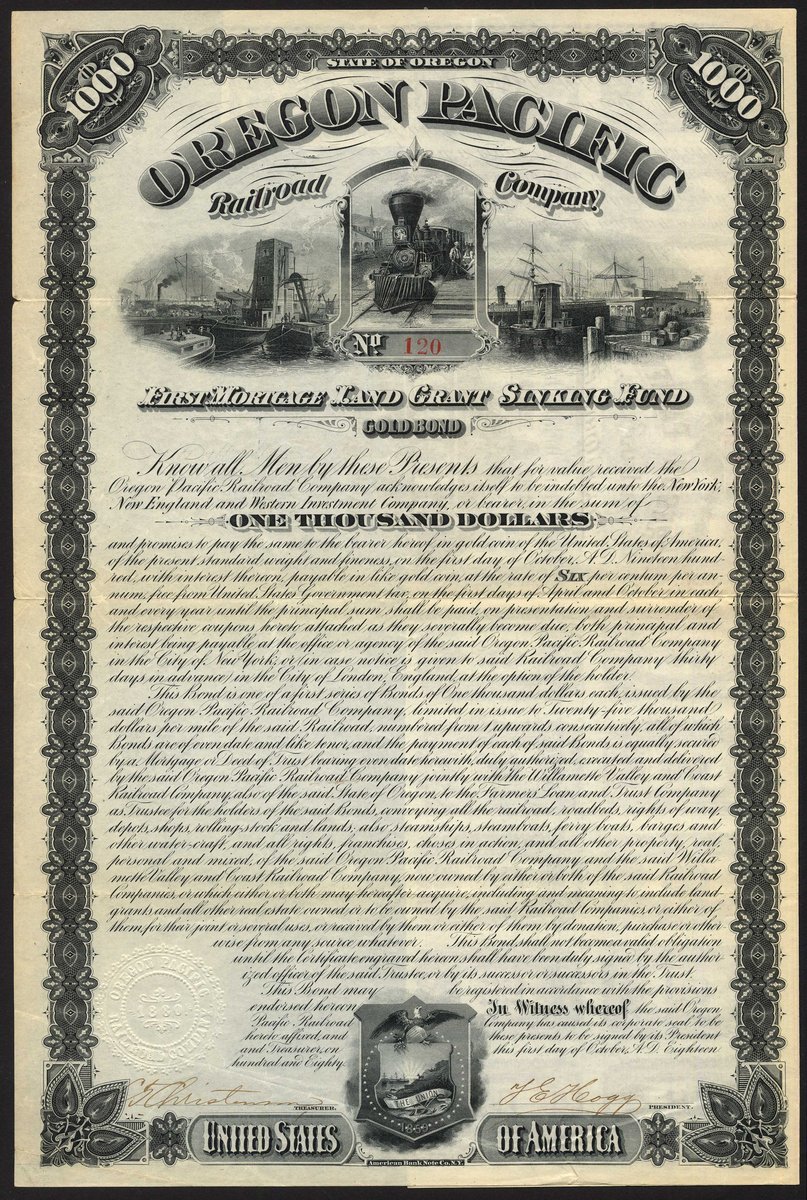 1000
STATE OF OREGON
1000
OREGON PACIFIC
Railroad Company,
No 120
FIRST MORTGAGE LAND GRANT SINKING FUND
GOLD BOND
Know all Men by these Presents that for value received the
Oregon Pacific Railroad Company acknowledges itself to be indebted unto the New York,
New England and Western Investment Company, or bearer, in the sum of
ONE THOUSAND DOLLARS
and promises to pay the same to the bearer hereof in gold coin of the United States of America,
of the present standard weight and fineness, on the first day of October, A.D. Nineteen hund
red, with interest thereon, payable in like gold coin, at the rate of SIX per centum per an-
num, free from United States Government tax, on the first days of April and October, in each
and every year until the principal sum shall be paid, on presentation and surrender of
the respective coupons hereto attached as they severally become due, both principal and
interest being payable at the office or agency of the said Oregon Pacific Railroad Company
in the City of New York, or (in case notice is given to said Railroad Company thirty
days in advance) in the City of London, England, at the option of the holder.
This Bond is one of a first series of Bonds of One thousand dollars each, issued by the
said Oregon Pacific Railroad Company, limited in issue to Twenty-five thousand
dollars per mile of the said Railroad, numbered from 1 upwards consecutively, all of which
Bonds are of even date and like tenor, and the payment of each of said Bonds is equally secured
by a Mortgage or Deed of Trust bearing even date herewith, duly authorized, executed and delivered
by the said Oregon Pacific Railroad Company jointly with the Willamette Valley and Coast
Railroad Company, also of the said State of Oregon, to the Farmers Loan and Trust Company
as Trustee for the holders of the said Bonds, conveying all the railroad, roadbeds, rights of way,
depots, shops, rolling-stock and lands; also, steamships, steamboats, ferry boats, barges and
other water-craft, and all rights, franchises, choses in action, and all other property, real,
personal and mixed, of the said Oregon Pacific Railroad Company and the said Willa
mette Valley and Coast Railroad Company, now owned by either or both of the said Railroad
Companies, or which either or both may hereafter acquire, including and meaning to include land
grants and all other real estate owned or to be owned by the said Railroad Companies, or either of
them, for their joint or several uses, or received by them or either of them by donation, purchase or other
wise from any source whatever. This Bond shall not become a valid obligation
until the Certificate engraved hereon shall have been duly signed by the author
ized officer of the said Trustee, or by its successor or successors in the Trust.
This Bond may be registered in accordance with the provisions
endorsed hereon In Witness whereof the said Oregon
Pacific Railroad Company has caused its corporate seal to be
hereto affixed, and these presents to be signed by its President
and Treasurer, on this first day of October, A.D. Eighteen
hundred and Eighty.
OREGON PACIFIC
1880
THE UNION
1859
TREASURER.
T E Hogg
PRESIDENT.
UNITED STATES OF AMERICA
American Bank Note Co. N.Y.